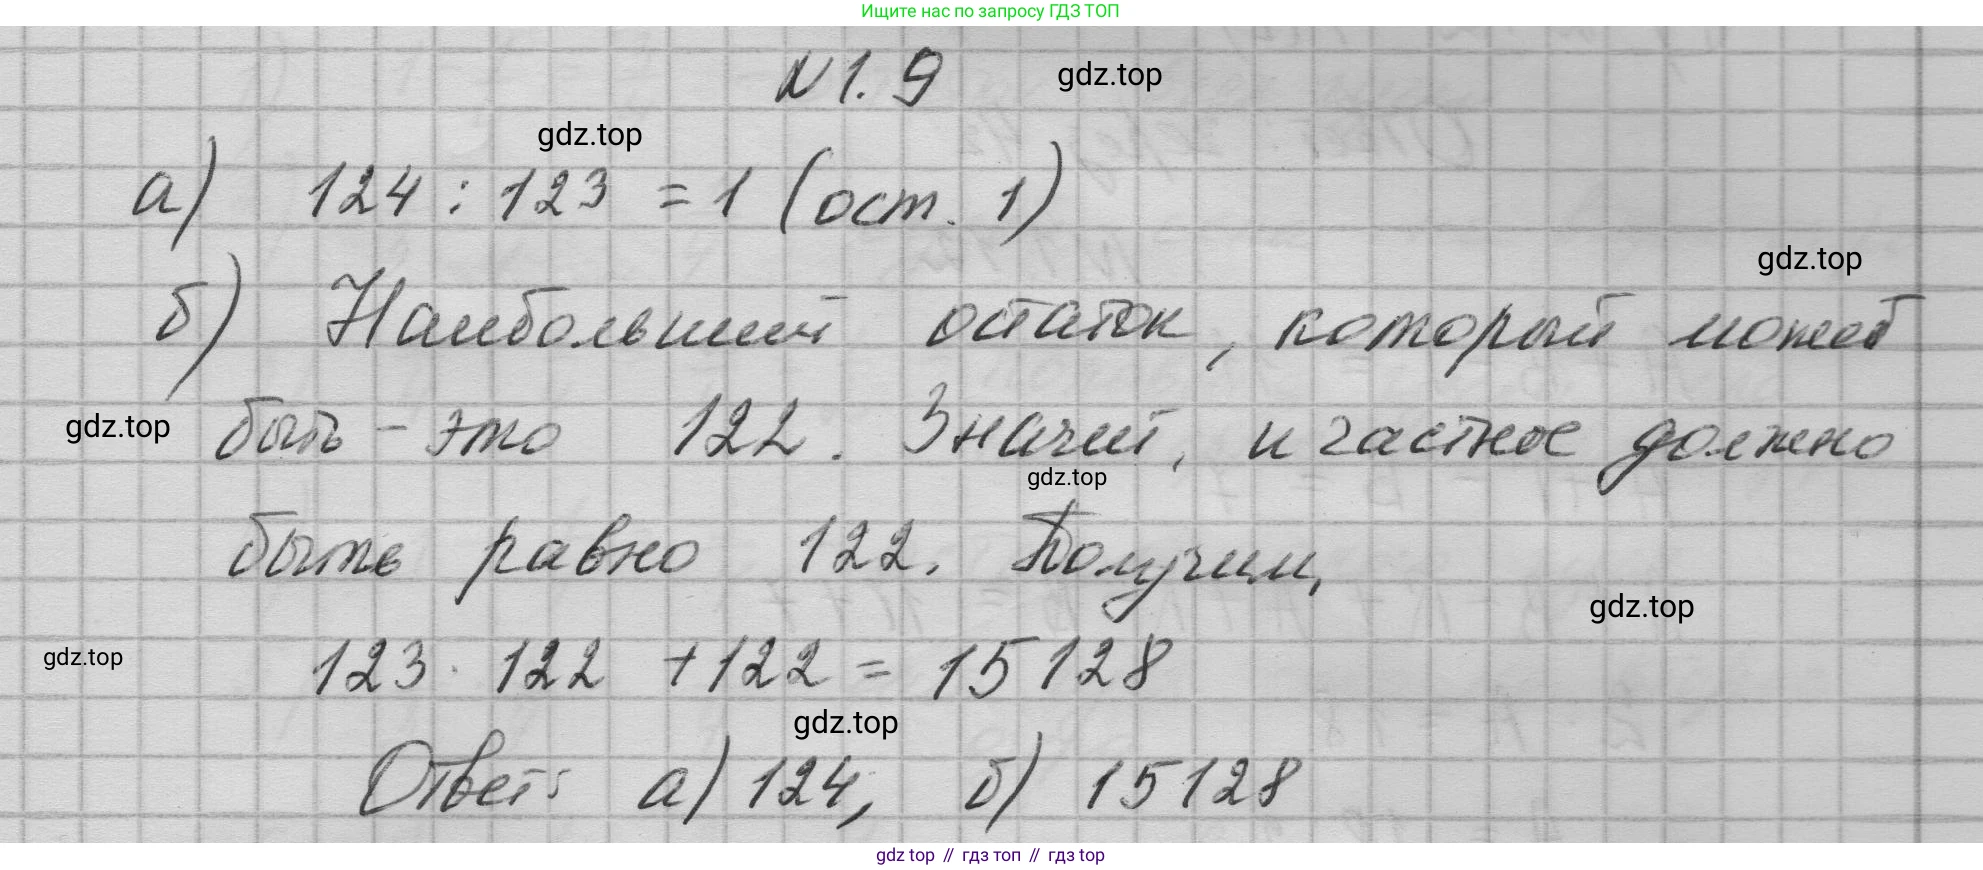 Ищите нас по запросу ГДЗ ТОП
N 1. 9
gdz.top
gdz.top
а) 124 : 123 = 1 (ост. 1)
gdz.top
б) Наибольший остаток, который может
gdz.top
быть - это 122. Значит, и частное должно
gdz.top
быть равно 122. Получим,
gdz.top
gdz.top
123 · 122 + 122 = 15128
gdz.top
Ответ: а) 124, б) 15128
gdz top // гдз топ // гдз top